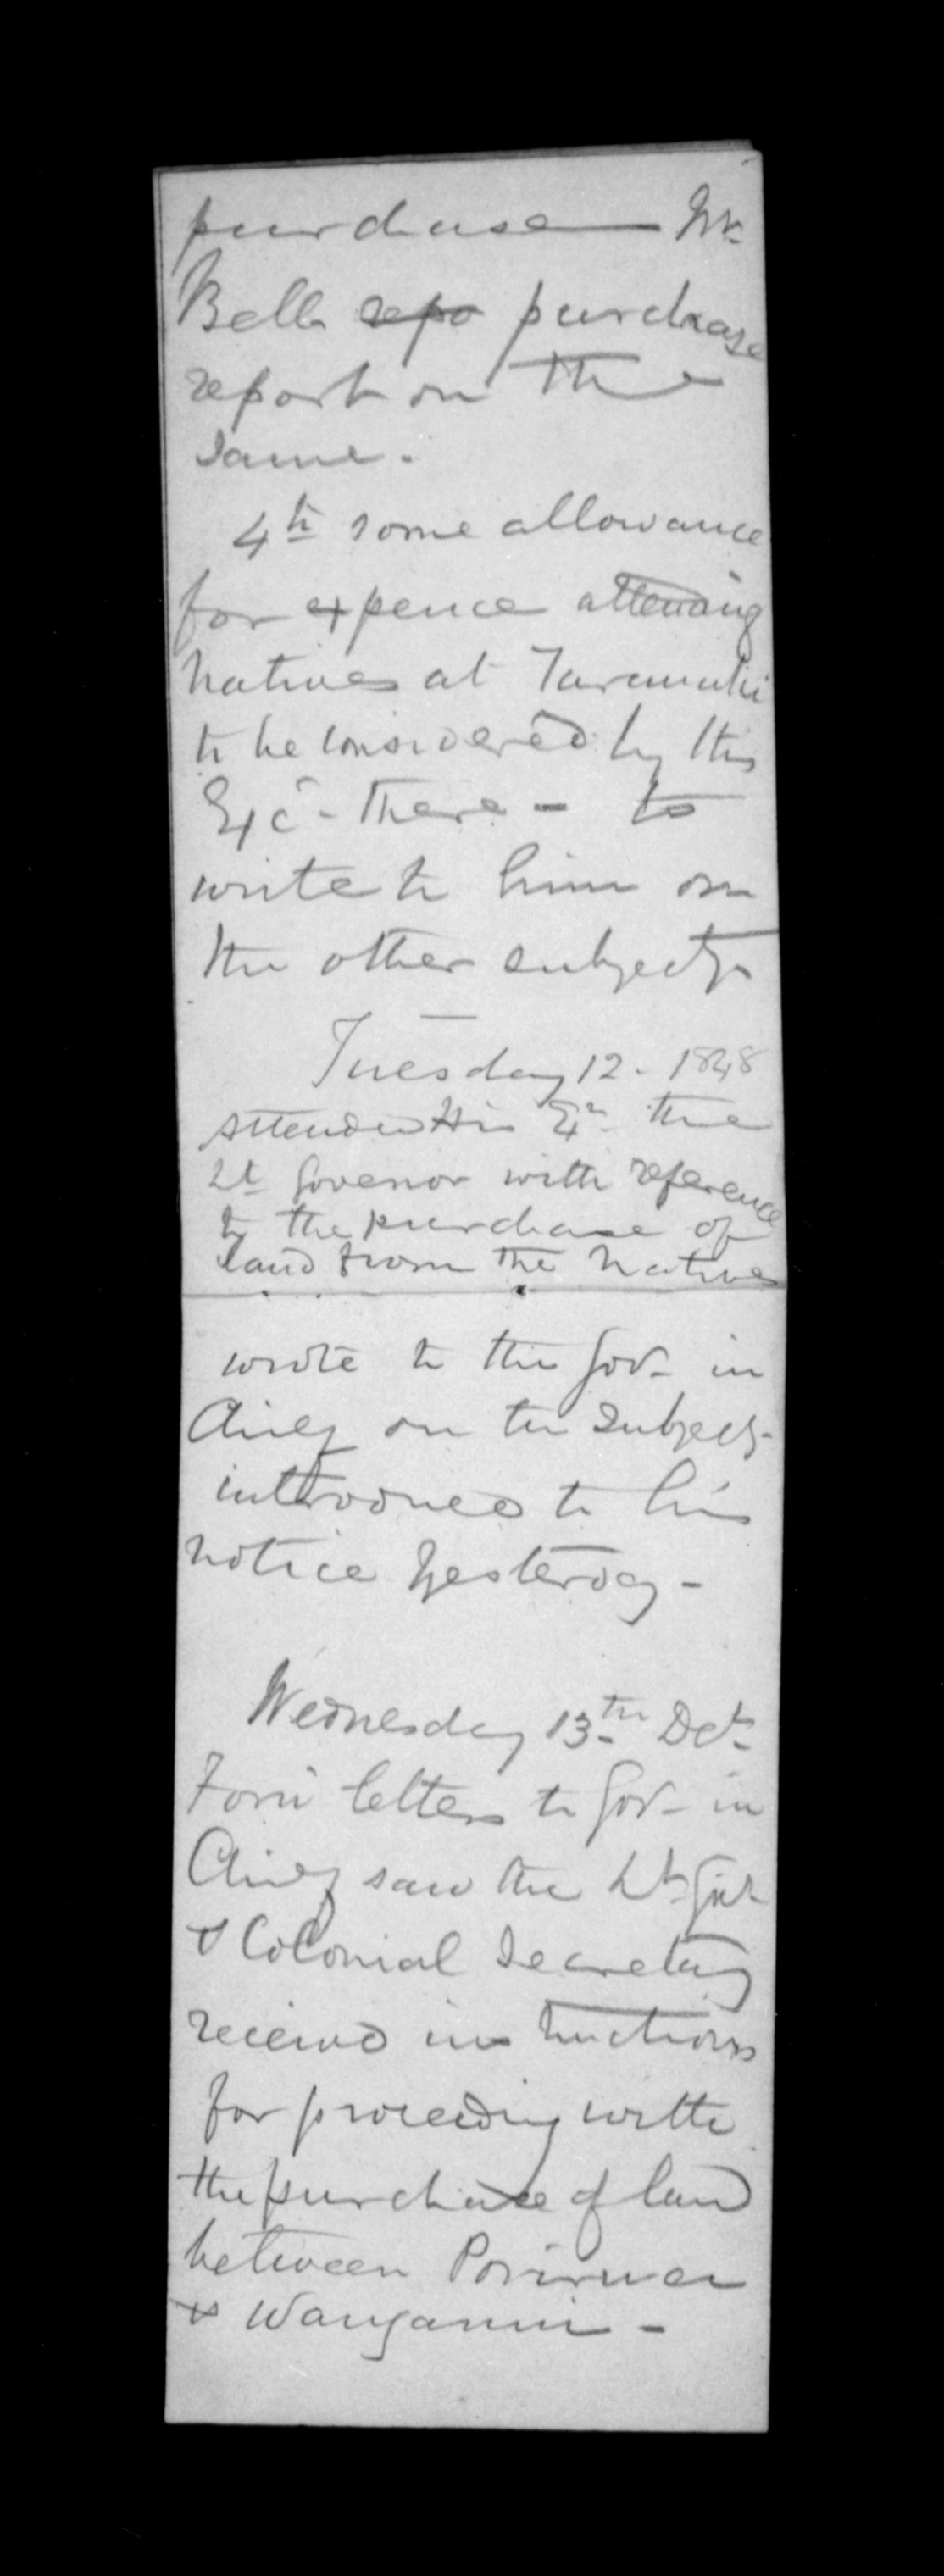 purchase — Mr
Bells repo purchase
report on the
same.
4th some allowance
for expence attending
Natives at Taranaki
to be considered by His
Exc - there - to
write to him on
the other subjects
Tuesday 12 - 1848
Attended His Ex. the
Lt Govenor with reference
to the purchase of
land from the Natives
wrote to the Gov - in
Chief on the subjects
introduced to his
notice yesterday -
Wednesday 13th Dec
letters to Gov - in
Chief saw the Lt Gov
& Colonial Secretary
received instructions
for proceeding with
the purchase of land
between Porirua
& Wanganui -